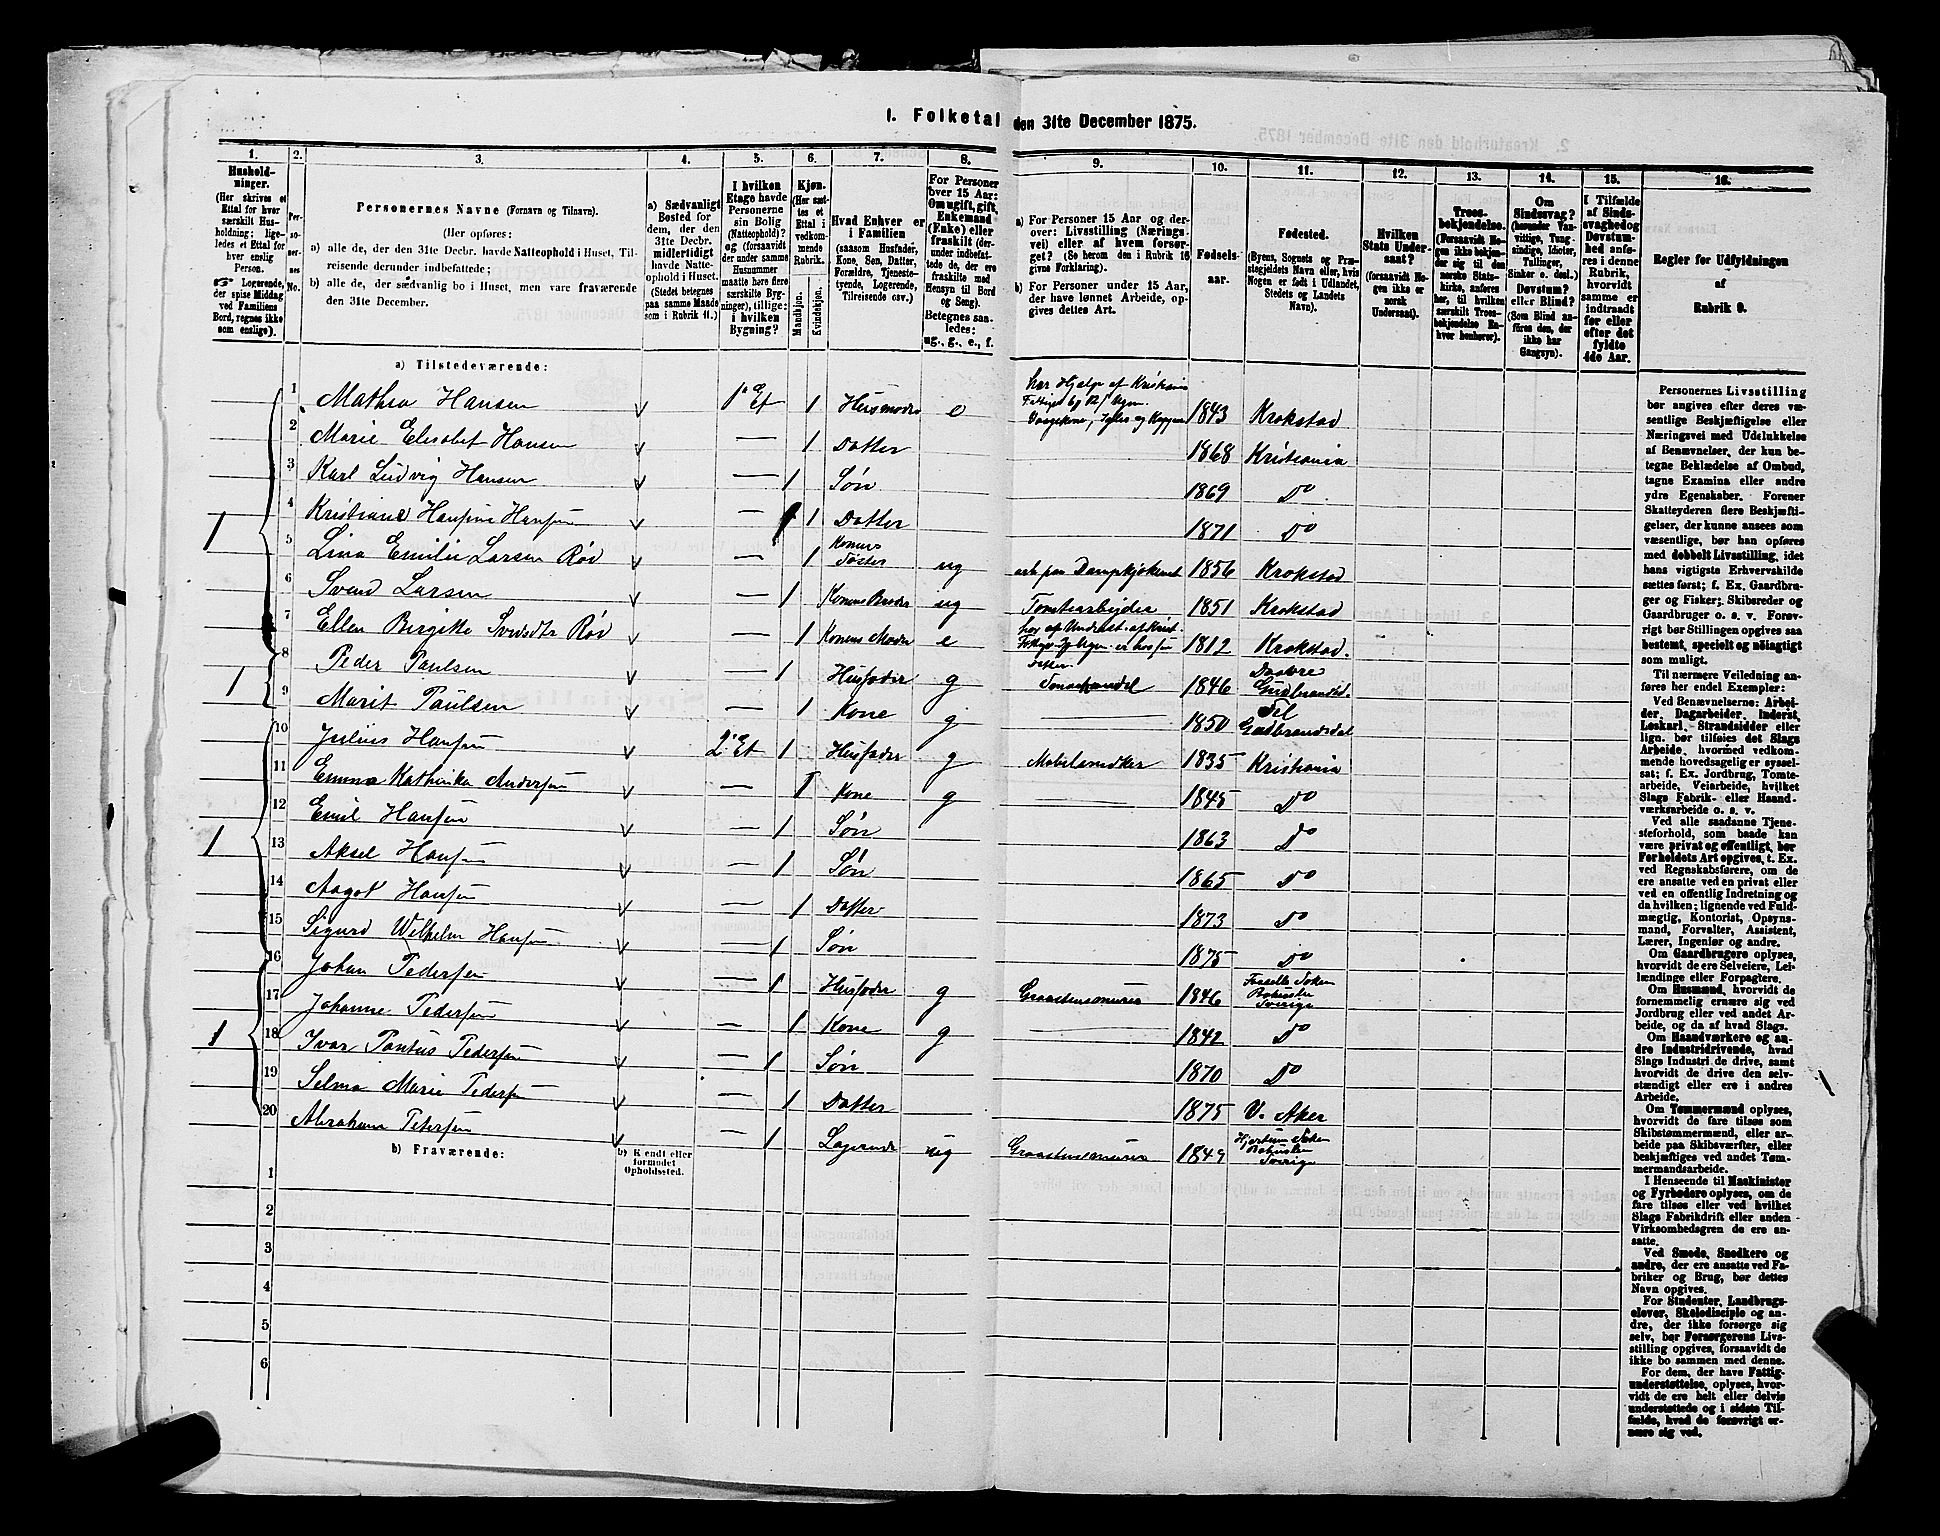 1. Folketal den 31te December 1875.
1. 2. 3. 4. 5. 6. 7. 8. 9. 10. 11. 12. 13. 14. 15. 16.
Husholdninger.
(Her skrives et Ettal for hver særskilt Husholdning; ligeledes et Ettal for hver enslig Person.
Logerende, der spise Middag ved Familiens Bord, regnes ikke som enslige).
Personernes No.
Personernes Navne (Fornavn og Tilnavn).
(Her opføres:
a) alle de, der den 31te Decbr. havde Natteophold i Huset, Tilreisende derunder indbefattede;
b) alle de, der sædvanlig bo i Huset, men vare fraværende den 31te December.
a) Sædvanligt Bosted for dem, der den 31te Decbr. midlertidigt havde Natteophold i Huset.
(Stedet betegnes paa samme Maade som i Rubrik 11.)
I hvilken Etage havde Personerne sin Bolig (Natteophold)? og (forsaavidt der under samme Husnummer maatte høre flere særskilte Bygninger), tillige: i hvilken Bygning?
Kjøn.
(Her sættes et Ettal i vedkommende Rubrik.
Mandkjøn.
Kvindekjøn.
Hvad Enhver er i Familien
(saasom Husfader, Kone, Søn, Datter, Forældre, Tjenestetyende, Logerende, Tilreisende osv.)
For Personer over 15 Aar: Om ugift, gift, Enkemand (Enke) eller fraskilt (derunder indbefattede de, der ere fraskilte med Hensyn til Bord og Seng).
Betegnes saaledes: ug., g., e., f.
a) For Personer 15 Aar og derover: Livsstilling (Næringsvei) eller af hvem forsørget? (Se herom den i Rubrik 16 givne Forklaring).
b) For Personer under 15 Aar, der have lønnet Arbeide, opgives dettes Art.
Fødselsaar.
Fødested.
(Byens, Sognets og Præstegjeldets Navn eller, hvis Nogen er født i Udlandet, Stedets og Landets Navn).
Hvilken Stats Undersaat?
(forsaavidt Nogen ikke er norsk Undersaat).
Troesbekjendelse.
(Forsaavidt Nogen ikke bekjender sig til den norske Statskirke, anføres her, til hvilken særskilt Troesbekjendelse Enhver henhører).
Om Sindssvag?
(herunder Vanvittige, Tungsindige, Idioter, Tullinger, Sinker o. desl.)
Døvstum?
eller Blind?
(Som Blind anføres den, der ikke har Gangsyn).
I Tilfælde af Sindssvaghed og Døvstumhed anføres i denne Rubrik, hvorvidt samme er indtraadt før eller efter det fyldte 4de Aar.
Regler for Udfyldningen
af
Rubrik 9.
a) Tilstedeværende:
1 Mathea Hansen v 1. Et 1 Husmoder e har Hjælp af Kristiania 1843 Krokstad
2 Marie Elisabet Hansen v — 1 Datter 1868 Kristiania
3 Karl Ludvig Hansen v — 1 Søn 1869 Do
4 Kristiane Hansine Hansen v — 1 Datter 1871 Do
1 5 Lina Emilie Larsen Röd v — 1 Konens Søster ug arb paa Dampkjøkenet 1856 Krokstad
6 Svend Larsen v — 1 Konens Broder ug Tomtearbejder 1851 Krokstad
7 Ellen Birgitte Svendsdtr Röd v — 1 Konens Moder e 1812 Krokstad.
1 8 Peder Paulsen v — 1 Husfader g 1846 Gudbrandsd.
9 Marit Paulsen v — 1 Kone g — 1850 Gudbrandsdal
10 Julius Hansen v 2. Et 1 Husfader g Møbelsnedker 1835 Kristiania
11 Emma Kathinka Andersen v — 1 Kone g — 1845 Do
12 Emil Hansen v — 1 Søn 1863 Do
1 13 Aksel Hansen v — 1 Søn 1865 Do
14 Aagot Hansen v — 1 Datter 1873 Do
15 Sigurd Wilhelm Hansen v — 1 Søn 1875 Do
16 Johan Pedersen v — 1 Husfader g Graastensmurer 1846 Sverige
17 Johanne Pedersen v — 1 Kone g — 1842 Do
1 18 Ivar Pontus Pedersen v — 1 Søn 1870 Do
19 Selma Marie Pedersen v — 1 Datter 1875 V. Aker
20 Abraham Petersen v — 1 Logerende ug Graastensmurer 1849 Sverige
b) Fraværende:
b) Kjendt eller formodet Opholdssted.
1
2
3
4
5
6
Personernes Livsstilling bør angives efter deres væsentlige Beskjæftigelse eller Næringsvei med Udelukkelse af Benævnelser, der kun betegne Beklædelse af Ombud, tagne Examina eller andre ydre Egenskaber. Forener Skatteyderen flere Beskjæftigelser, der kunne ansees som væsentlige, bør han opføres med dobbelt Livsstilling, idet hans vigtigste Erhvervskilde sættes først; f. Ex. Gaardbruger og Fisker; Skibsreder og Gaardbruger o. s. v. Forøvrigt bør Stillingen opgives saa bestemt, specielt og nøiagtigt som muligt.
Til nærmere Veiledning anføres her endel Exempler:
Ved Benævnelserne: Arbeider, Dagarbeider, Inderst, Løskarl, Strandsidder eller lign. bør tilføies det Slags Arbeide, hvormed vedkommende hovedsagelig er sysselsat; f. Ex. Jordbrug, Tomtearbeide, Veiarbeide, hvilket Slags Fabrik- eller Haandværksarbeide o. s. v.
Ved alle saadanne Tjenesteforhold, som baade kan være privat og offentligt, bør Forholdets Art opgives, t. Ex. ved Regnskabsførere, om de ere ansatte ved en privat eller ved en offentlig Indretning og da hvilken; lignende ved Fuldmægtig, Kontorist, Opsynsmand, Forvalter, Assistent, Lærer, Ingeniør og andre.
Om Gaardbrugere oplyses, hvorvidt de ere Selveiere, Leilændinge eller Forpagtere.
Om Husmænd, hvorvidt de fornemmelig ernære sig ved Jordbrug eller ved andet Arbeide, og da af hvad Slags.
Om Haandværkere og andre Industridrivende, hvad Slags Industri de drive, samt hvorvidt de drive den selvstændigt eller ere i andres Arbeide.
Om Tømmermænd oplyses, hvorvidt de fare tilsøs som Skibstømmermænd, eller arbeide paa Skibsværfter, eller beskjæftiges ved andet Tømmermandsarbeide.
I Henseende til Maskinister og Fyrbødere oplyses, om de fare tilsøs eller ved hvilket Slags Fabrikdrift eller anden Virksomhedsgren de ere ansatte.
Ved Smede, Snedkere og andre, der ere ansatte ved Fabriker og Brug, bør dettes Navn opgives.
For Studenter, Landbrugselever, Skoledisciple og andre, der ikke forsørge sig selv, bør Forsørgerens Livsstilling opgives, forsaavidt de ikke bo sammen med denne.
For dem, der have Fattigunderstøttelse, oplyses, hvorvidt de ere helt eller delvis understøttede og i sidste Tilfælde, hvad de forøvrigt ernære sig ved.